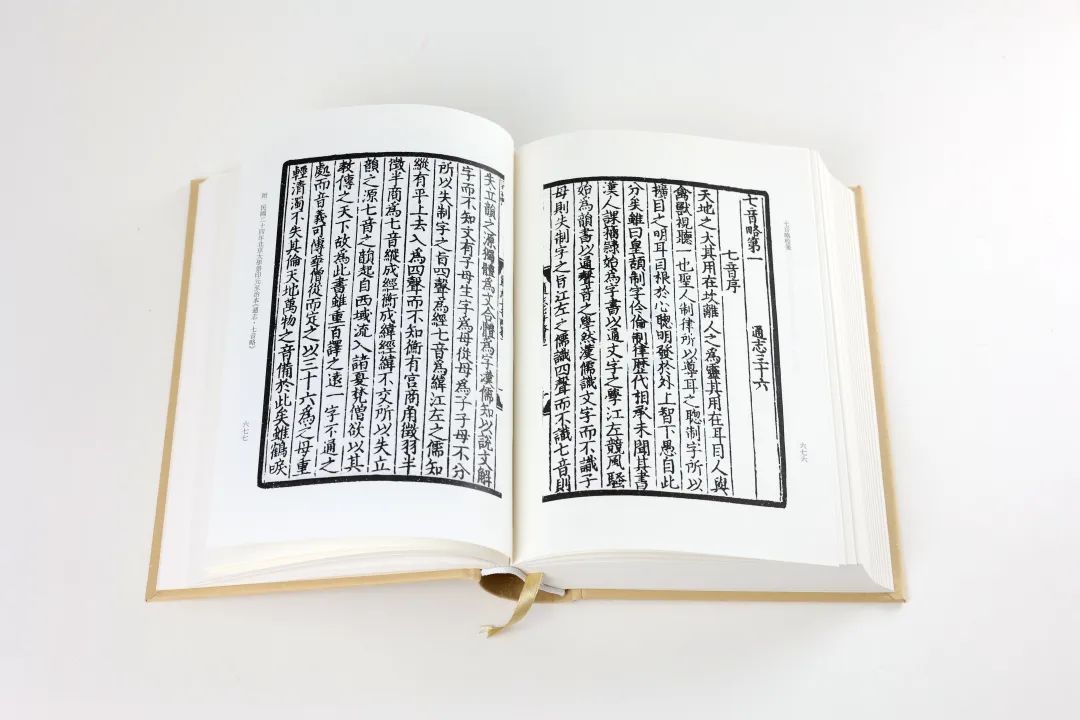 七音略校箋
六七六
七音略第一 通志三十六
七音序
天地之大其用在坎離人之為靈其用在耳目人與
禽獸視聽一也聖人制律所以導耳之聰制字所以
擴目之明耳目根於心聰明發於外上智下愚自此
分矣雖曰皇頡制字伶倫制律歷代相承未聞其書
漢人課籀隸始為字書以通文字之學江左競風騷
始為韻書以通聲音之學然漢儒識文字而不識子
母則失制字之旨江左之儒識四聲而不識七音則
失立韻之源獨體為文合體為字漢儒知以說文解
字而不知文有子母生字為母從母為子子母不分
所以失制字之旨四聲為經七音為緯江左之儒知
縱有平上去入為四聲而不知衡有宮商角徵羽半
徵半商為七音縱成經衡成緯經緯不交所以失立
韻之源七音之韻起自西域流入諸夏梵僧欲以其
教傳之天下故為此書雖重百譯之遠一字不通之
處而音義可傳華僧從而定之以三十六為之母重
輕清濁不失其倫天地萬物之音備於此矣雖鶴唳
附 民國二十四年北京大學影印元至治本《通志·七音略》
六七七